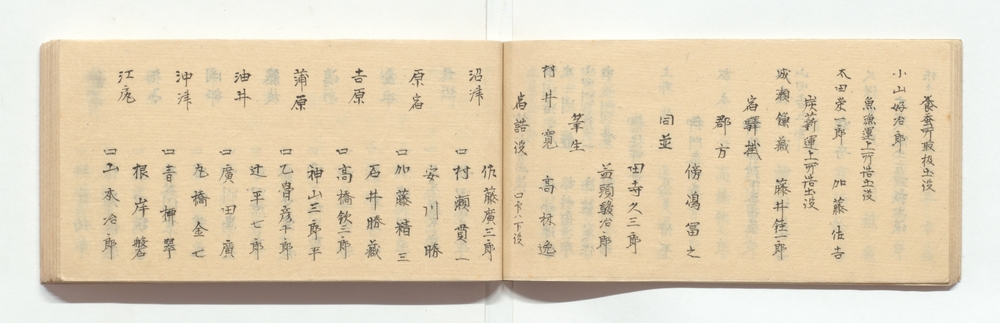 養蚕所取扱出役
小山好治郎
魚漁運上所詰出役
太田栄一郎 加藤佐吉
炭薪運上所詰出役
成瀬鎌蔵 藤井佳一郎
宿驛掛
郡方
傍嶋冨之
同並
田寺久三郎
荳頭駿治郎
筆生
村井寛 高林逸
宿詰役 口印ハ下役
佐藤廣三郎
沼津 口村瀬貫一
安川勝
原宿 口加藤精三
石井勝蔵
吉原 口高橋欽三郎
神山三郎平
蒲原 口乙骨彦千郎
辻平七郎
油井 口廣田廣
丸橋金七
沖津 口青柳翠
根岸磐若
江尻 口山永治郎